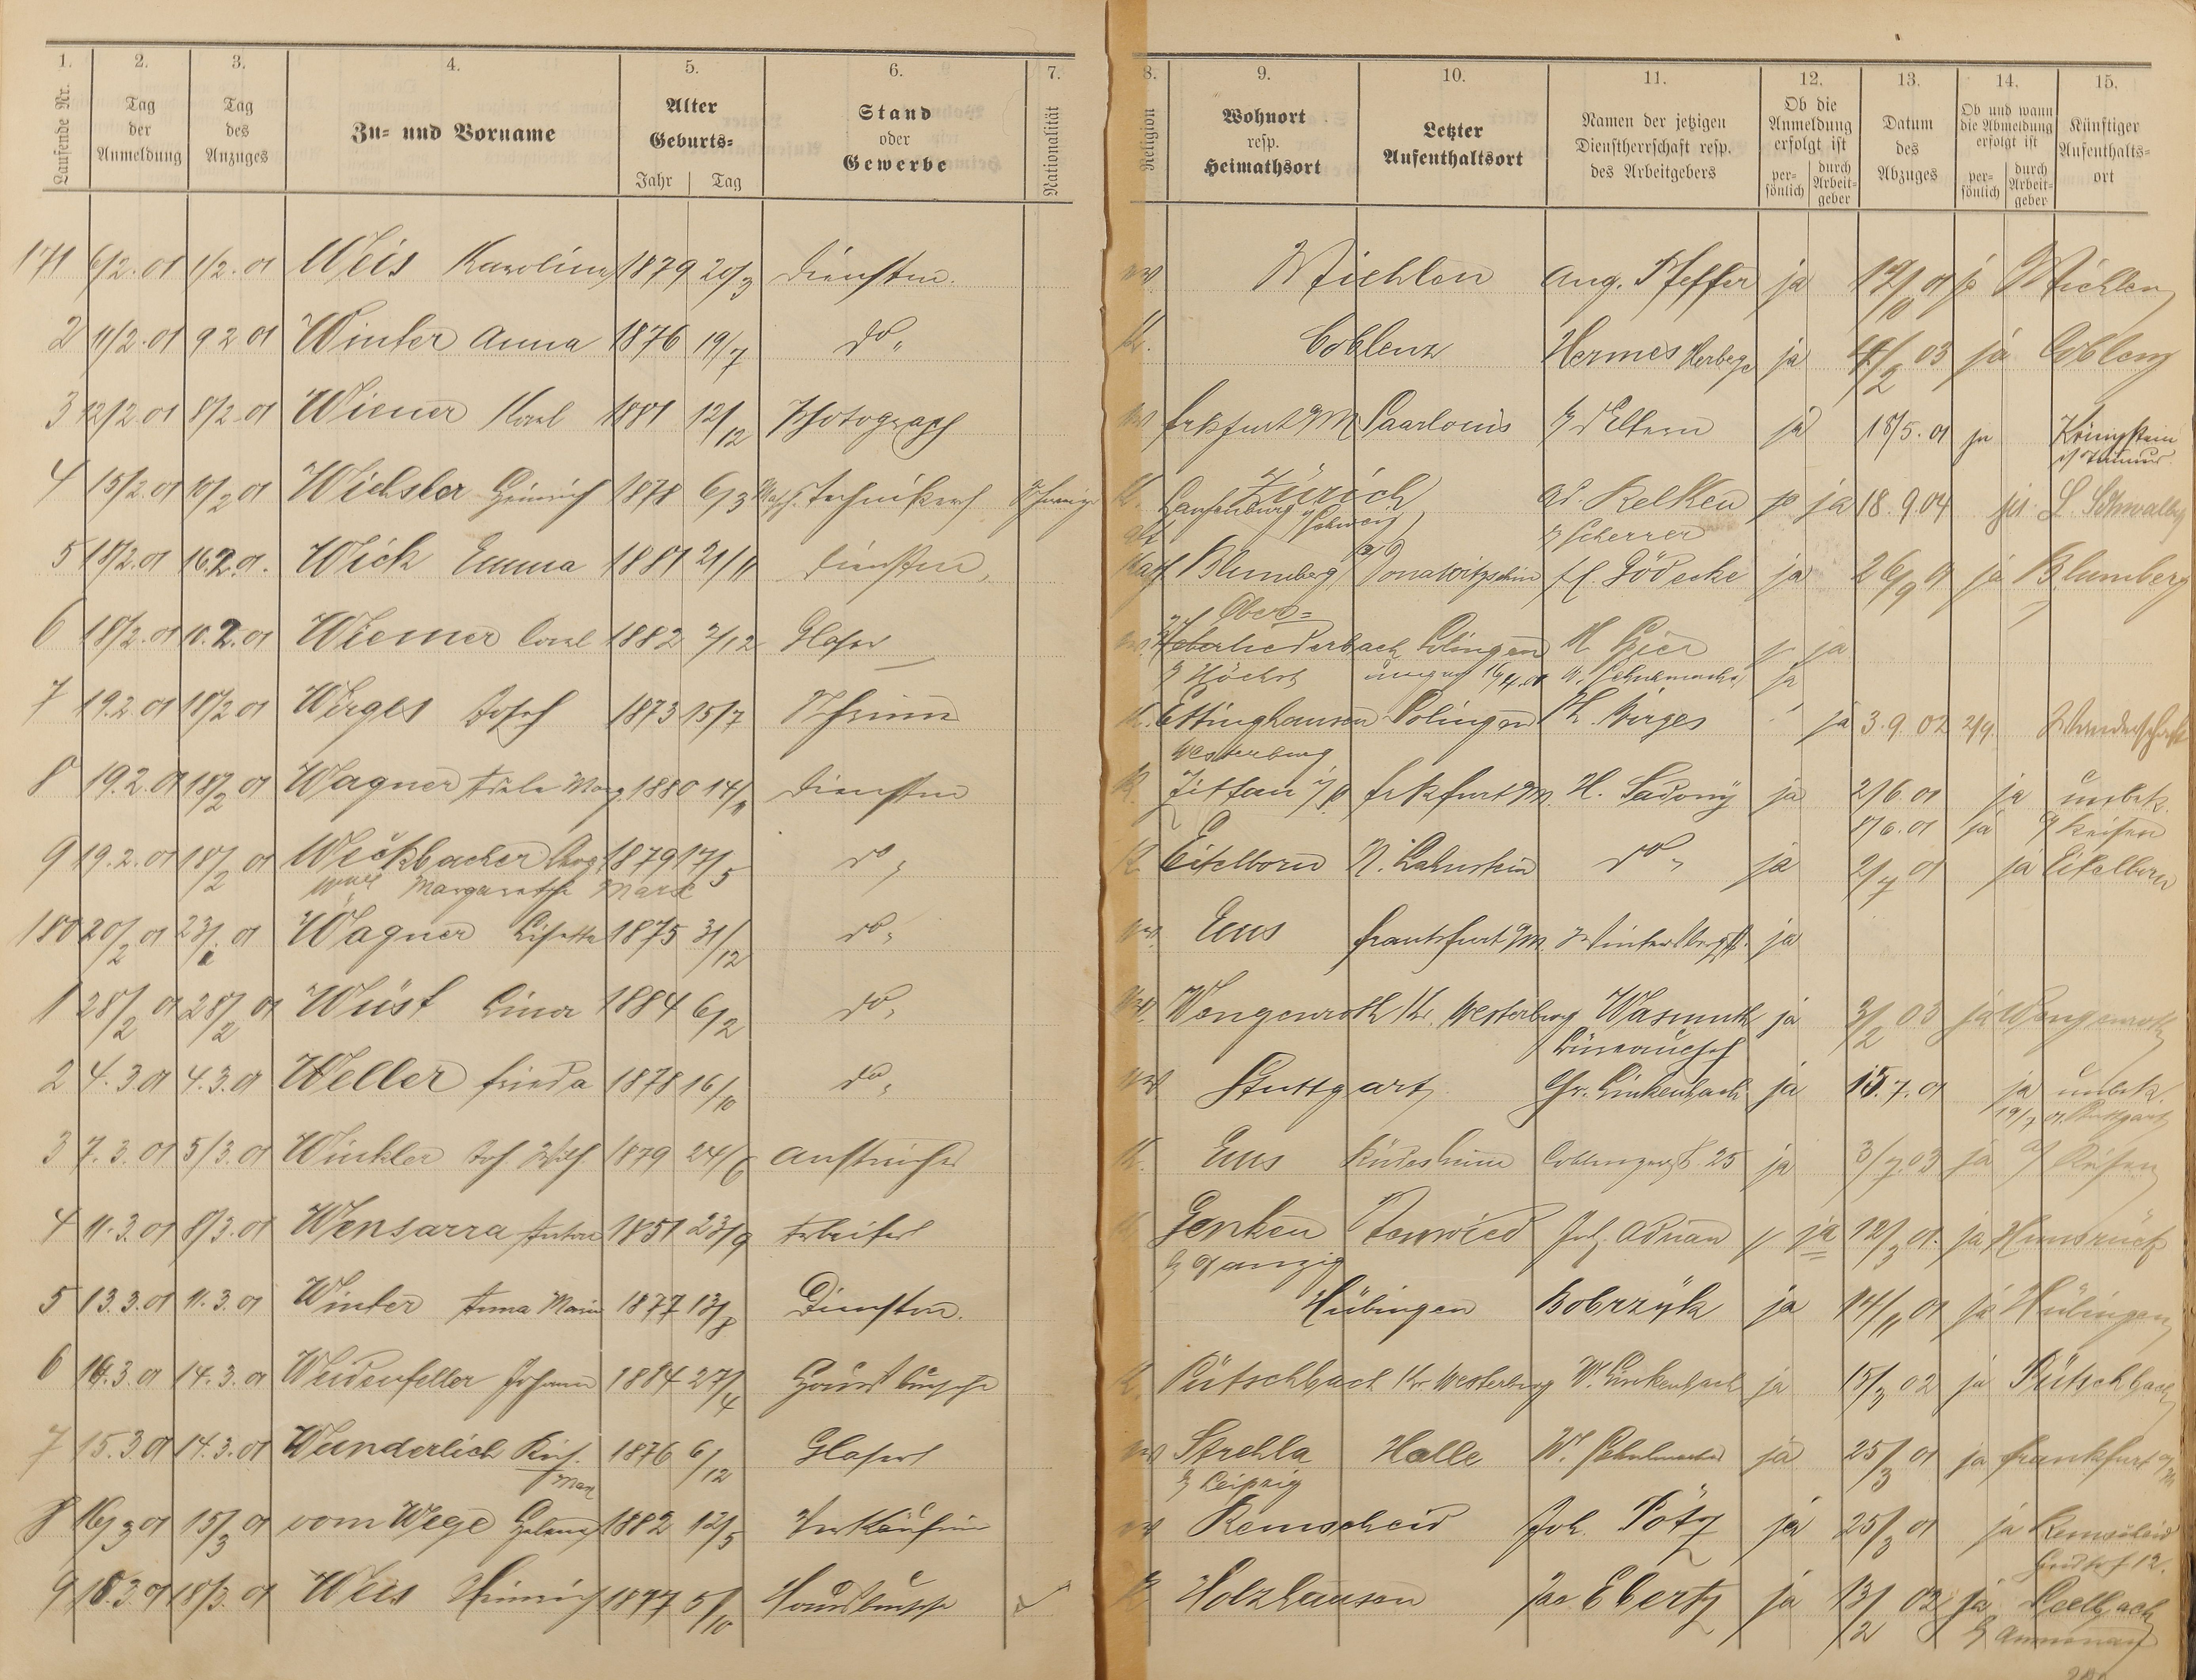 1. 2. 3. 4. 5. 6. 7. 8. 9. 10. 11. 12. 13. 14. 15.
Laufende Nr. | Tag der Anmeldung | Tag des Anzuges | Zu- und Vorname | Alter Geburts- Jahr | Tag | Stand oder Gewerbe | Nationalität | Religion | Wohnort resp. Heimathsort | Letzter Aufenthaltsort | Namen der jetzigen Dienstherrschaft resp. des Arbeitgebers | Ob die Anmeldung erfolgt ist persönlich | durch Arbeitgeber | Datum des Abzuges | Ob und wann die Abmeldung erfolgt ist persönlich | durch Arbeitgeber | Künftiger Aufenthaltsort
171 6/2.01 1/2.01 Weis Karolina 1879 20/3 Dienstm. ev Miehlen Aug. Pfeffer ja 12/10 01 ja Miehlen
2 11/2.01 9 2 01 Winter Anna 1876 19/7 do K. Coblenz Hermes Herberge ja 4/2 03 ja Coblenz
3 12/2.01 8/2.01 Wiener Karl 1881 12/12 Photograph ev Frkfurt a/M Saarlouis b/d Eltern ja 18/5.01 ja Königstein
i/Taunus
4 15/2.01 10/2 01 Wichsler Heinrich 1878 6/3 Masch. Techniker Schweiz K. Zürich Ad. Relken ja 18.9.04 ja L. Schwalb
Laufenburg Schweiz b/ Scherrer
5 18/2.01 16.2.01. Wick Emma 1881 21/11 Dienstm. Blumberg fl. Gödecke ja 26/9 01 ja Blumberg
Ober=
6 18/2.01 10.2.01 Wiemer Carl 1882 2/12 Glaser ev. liederbach Solingen ja
b/ Höchst W. Schumacher ja
7 19.2.01 18/2 01 Wirges Josef 1873 15/7 Schreiner K. Ettinghausen Solingen Wirges ja 3.9.02 2/9. Wanderschaft
Westerburg
8 19.2.01 18/2 01 Wagner Adele Marg. 1880 14/11 Dienstm K. Zittau i/S Frkfurt a/M. H. Sadony ja 2/6 01 ja unbek.
8/6.01 ja a/ Reisen
9 19.2.01 18/2 01 Wickbacher 1879 17/5 do K. Eitelborn N. Lahnstein do ja 2/7 01 ja Eitelborn
Margarethe Marx
180 20/2 01 23/1 01 Wagner Lisette 1875 31/12 do ev. Ems Frankfurt a/M. ja
1 28/2 01 28/2 01 Wüst Lina 1884 6/2 do ev. Wengenroth Kr. Westerburg Wasmuth ja 3/2 03 ja Wengenroth
2 4.3.01 4.3.01 Weller Frieda 1878 16/10 do ev Stuttgart Gr. Linkenbach ja 15.7.01 ja unbek.
19/7 01 Stuttgart
3 7.3.01 5/3.01 Winkler Jos. Wilh. 1879 24/6 Anstreicher K. Ems Rüdesheim Coblenzerstr. 25 ja 3/7.03 ja a/ Reisen
4 11.3.01 8/3.01 Wensarra Anton 1851 23/9 Arbeiter Genken Neuwied Joh. Adrian ja 12/3 01. ja Hunsrück
b/ Danzig
5 13.3.01 11.3.01 Winter Anna Maria 1877 13/8 Dienstm. Hübingen Bobrzyk ja 14/11 01 ja Hübingen
6 14.3.01 14.3.01 Weidenfeller Johann 1884 27/4 Hausbursche K. Pütschbach Kr. Westerburg W. Linkenbach ja 15/3 02 ja Pütschbach
7 15.3.01 14.3.01 Wunderlich 1876 6/12 Glaser ev Strehla Halle W. Schumacher ja 25/3 01 ja Frankfurt a/M
Max b/ Leipzig
8 16/3 01 15/3 01 vom Wege Helene 1882 12/5 Verkäuferin ev Remscheid Joh. Pötz ja 25/3 01 ja Remscheid
9 18.3.01 18/3 01 Weis Heinrich 1877 5/10 Hausbursche Holzhausen Jac Ebertz ja 13/2 02 ja Seelbach